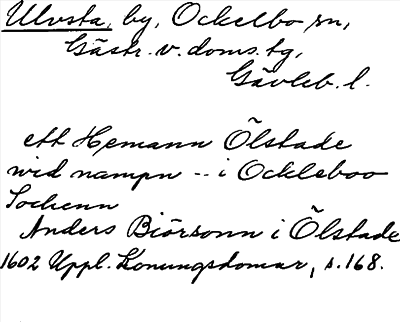 Ulvsta, by, Ockelbo sn,
Gästr. v. doms. tg,
Gävleb. l.
ett Hemann Ölstade
wid nampn -- i Ockleboo
Sochenn
Anders Biörsonn i Ölstade
1602 Uppl. Konungsdomar, s. 168.